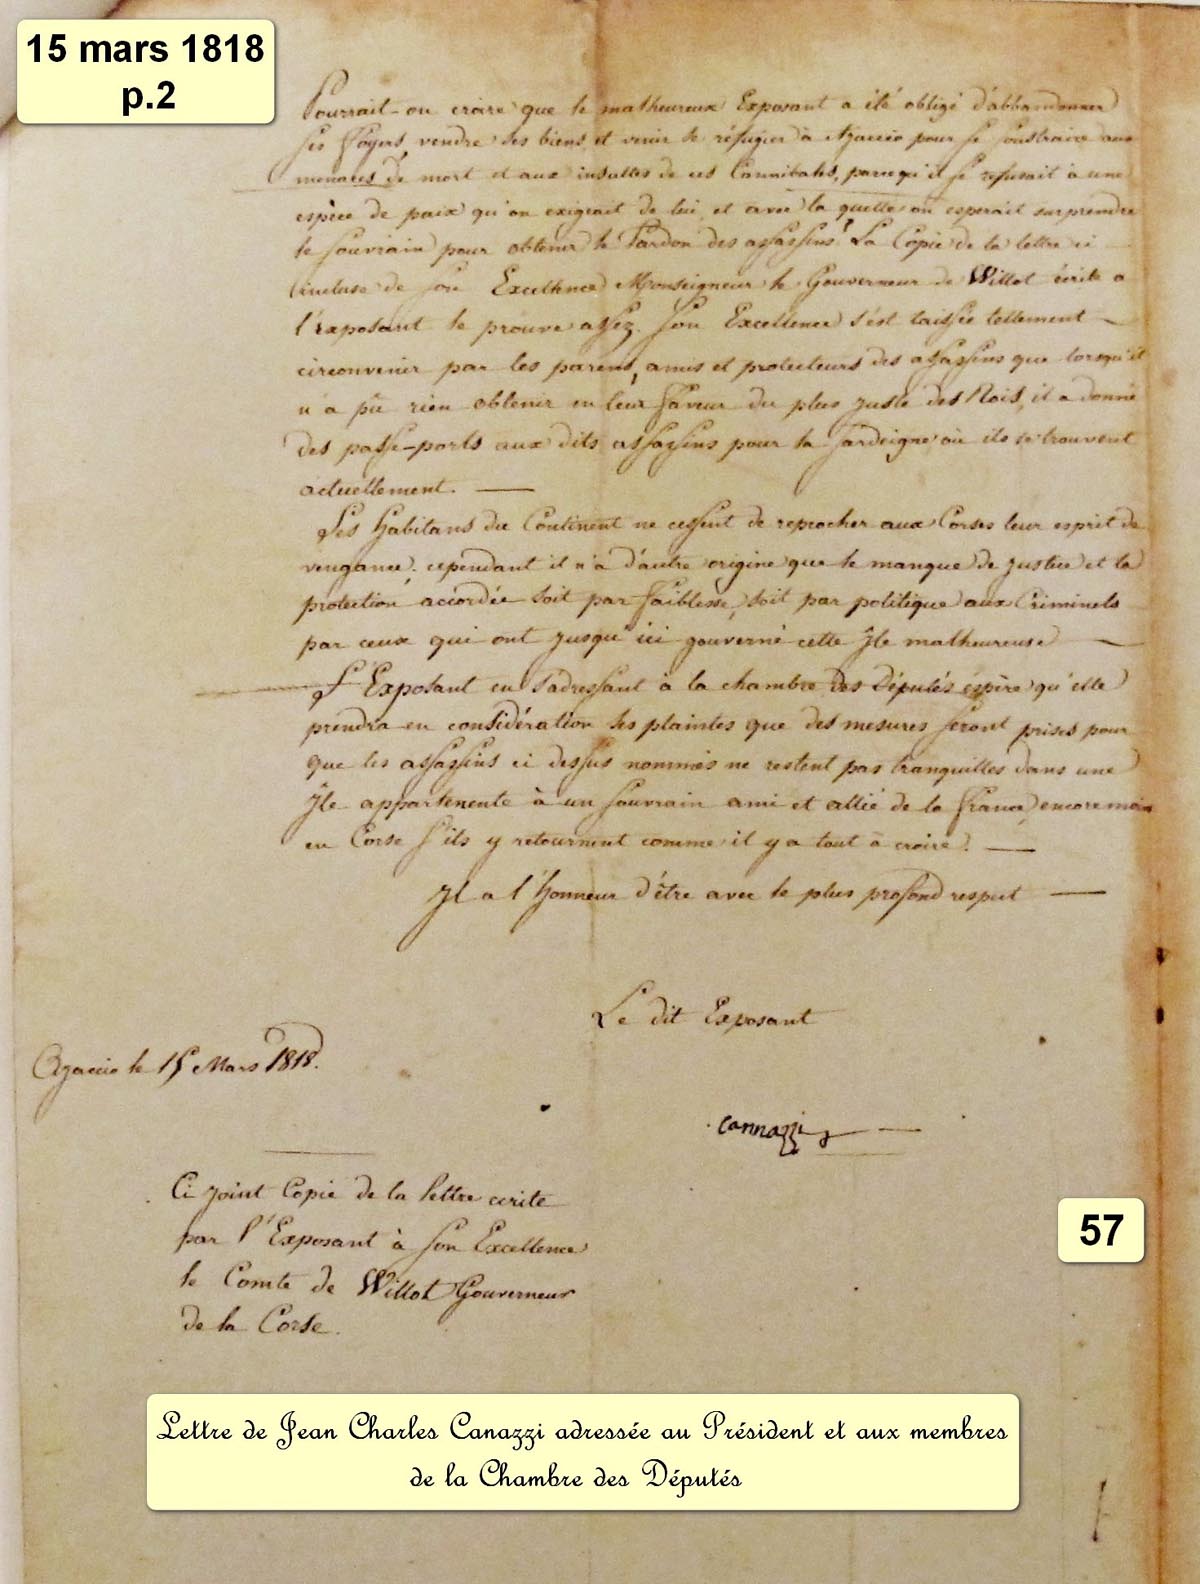 15 mars 1818
p.2
Pourrait-on croire que le malheureux Exposant a été obligé d'abbandonner
ses foyers, vendre ses biens, et venir se réfugier à Ajaccio pour se soustraire aux
menaces de mort et aux insultes de ces Cannibales, parcequ'il se refusait à une
espèce de paix qu'on exigeait de lui, et avec la quelle on esperait surprendre
le souvrain pour obtenir le Pardon des assassins? La Copie de la lettre ci
incluse de son Excellence Monseigneur le Gouverneur de Willot écrite a
l'exposant le prouve assez. Son Excellence s'est laissée tellement
circonvenir par les parens, amis et protecteurs des assassins que lorsqu'il
n'a pu rien obtenir en leur faveur du plus juste des Rois, il a donné
des passe-ports aux dits assassins pour la Sardeigne où ils se trouvent
actuellement.
Les habitans du Continent ne cessent de reprocher aux Corses leur esprit de
vengance; cependant il n'a d'autre origine que le manque de justice et la
protection accordée soit par faiblesse, soit par politique aux Criminels
par ceux qui ont jusqu'ici gouverné cette Jle malheureuse
L'Exposant en s'adressant à la chambre des Députés éspère qu'elle
prendra en considération ses plaintes que des mesures seront prises pour
que les assassins ci dessus nommés ne restent pas tranquilles dans une
Jle appartenente à un souvrain ami et allié de la france, encore moins
en Corse s'ils y retournent comme il y a tout à croire.
Jl a l'honneur d'être avec le plus profond respect
Le dit Exposant
Ajaccio le 15 Mars 1818.
Cannazzi
Ci joint Copie de la lettre ecrite
par l'Exposant à son Excellence
le Comte de Willot Gouverneur
de la Corse.
57
Lettre de Jean Charles Canazzi adressée au Président et aux membres
de la Chambre des Députés